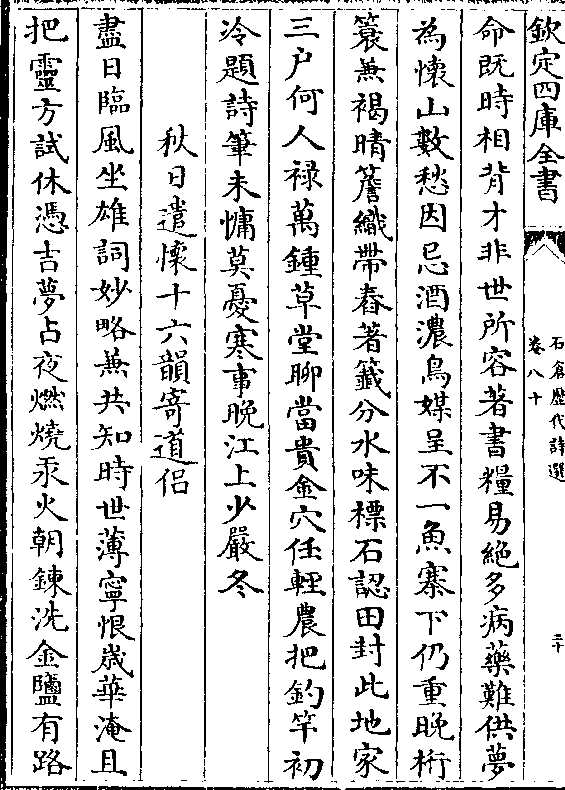 欽定四庫全書
石倉歷代詩選
卷八十
二十
命既時相背才非世所容著書糧易絶多病藥難供夢
為懷山數愁因忌酒濃鳥媒呈不一魚寨下仍重晚桁
簑無褐晴簷織帶舂著籤分水味標石認田封此地家
三户何人祿萬鍾草堂聊當貴金穴任輕農把釣竿初
冷題詩筆未慵莫憂寒事晚江上少嚴冬
秋日遣懷十六韻寄道侣
盡日臨風坐雄詞妙略兼共知時世薄寧恨歲華淹且
把靈方試休憑吉夢占夜燃燒汞火朝鍊洗金鹽有路